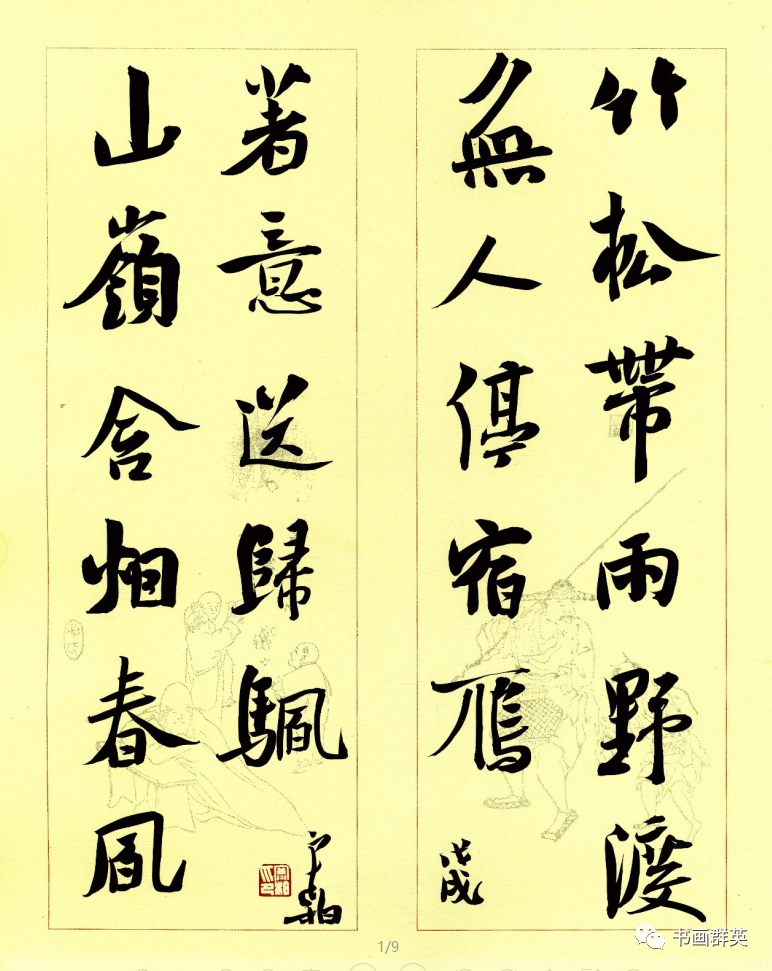 竹松帶雨野渡
無人停宿鴈
戊戌
山嶺含烟春風
著意送歸颿
1/9
书画群英